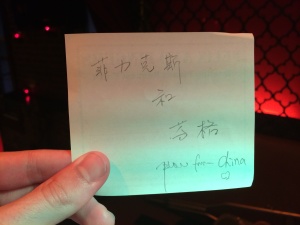 菲力克斯
和
芳格
from China